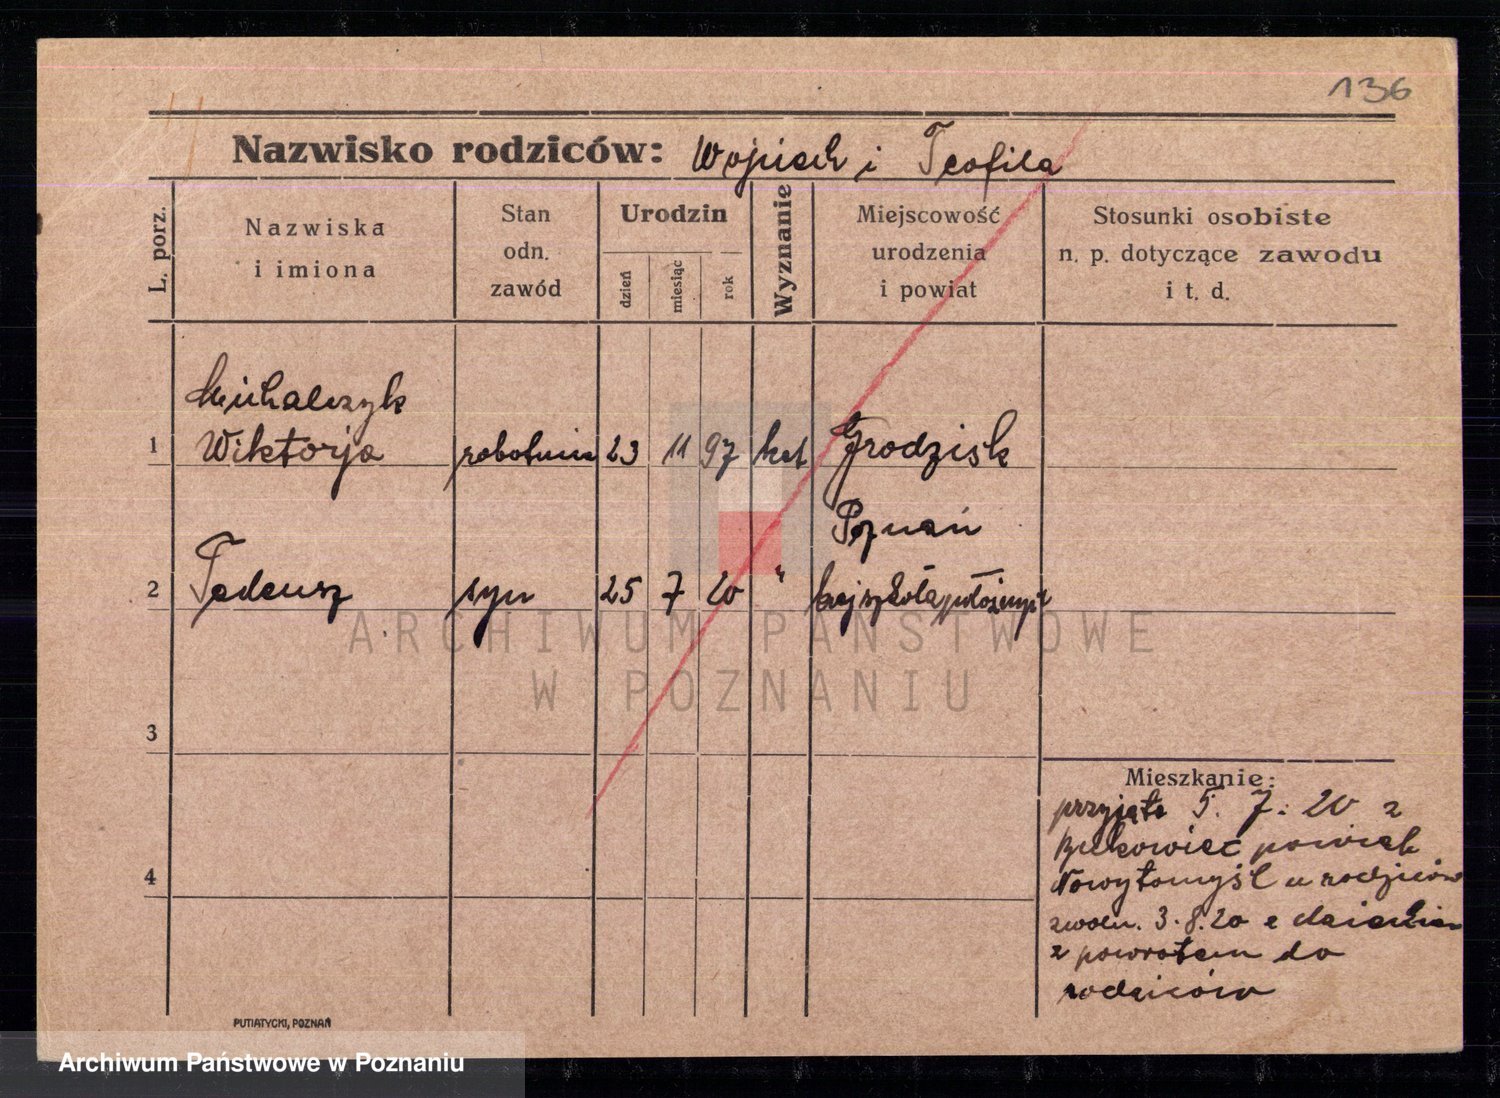 136
Nazwisko rodziców: Wojciech i Teofila
L. porz.
Nazwiska
i imiona
Stan
odn.
zawód
Urodzin
dzień
miesiąc
rok
Wyznanie
Miejscowość
urodzenia
i powiat
Stosunki osobiste
n. p. dotyczące zawodu
i t. d.
Michalczyk
1 Wiktorja robotnica 23 11 97 kat Grodzisk
Poznań
2 Tadeusz syn 25 7 20 " kraj szkoła położnych
3
4
Mieszkanie:
przyjęta 5. 7. 20 z
Bukowiec powiat
Nowytomyśl u rodziców
zwoln. 3.8.20 z dzieckiem
z powrotem do
rodziców
PUTIATYCKI, POZNAŃ
ARCHIWUM PAŃSTWOWE
W POZNANIU
Archiwum Państwowe w Poznaniu